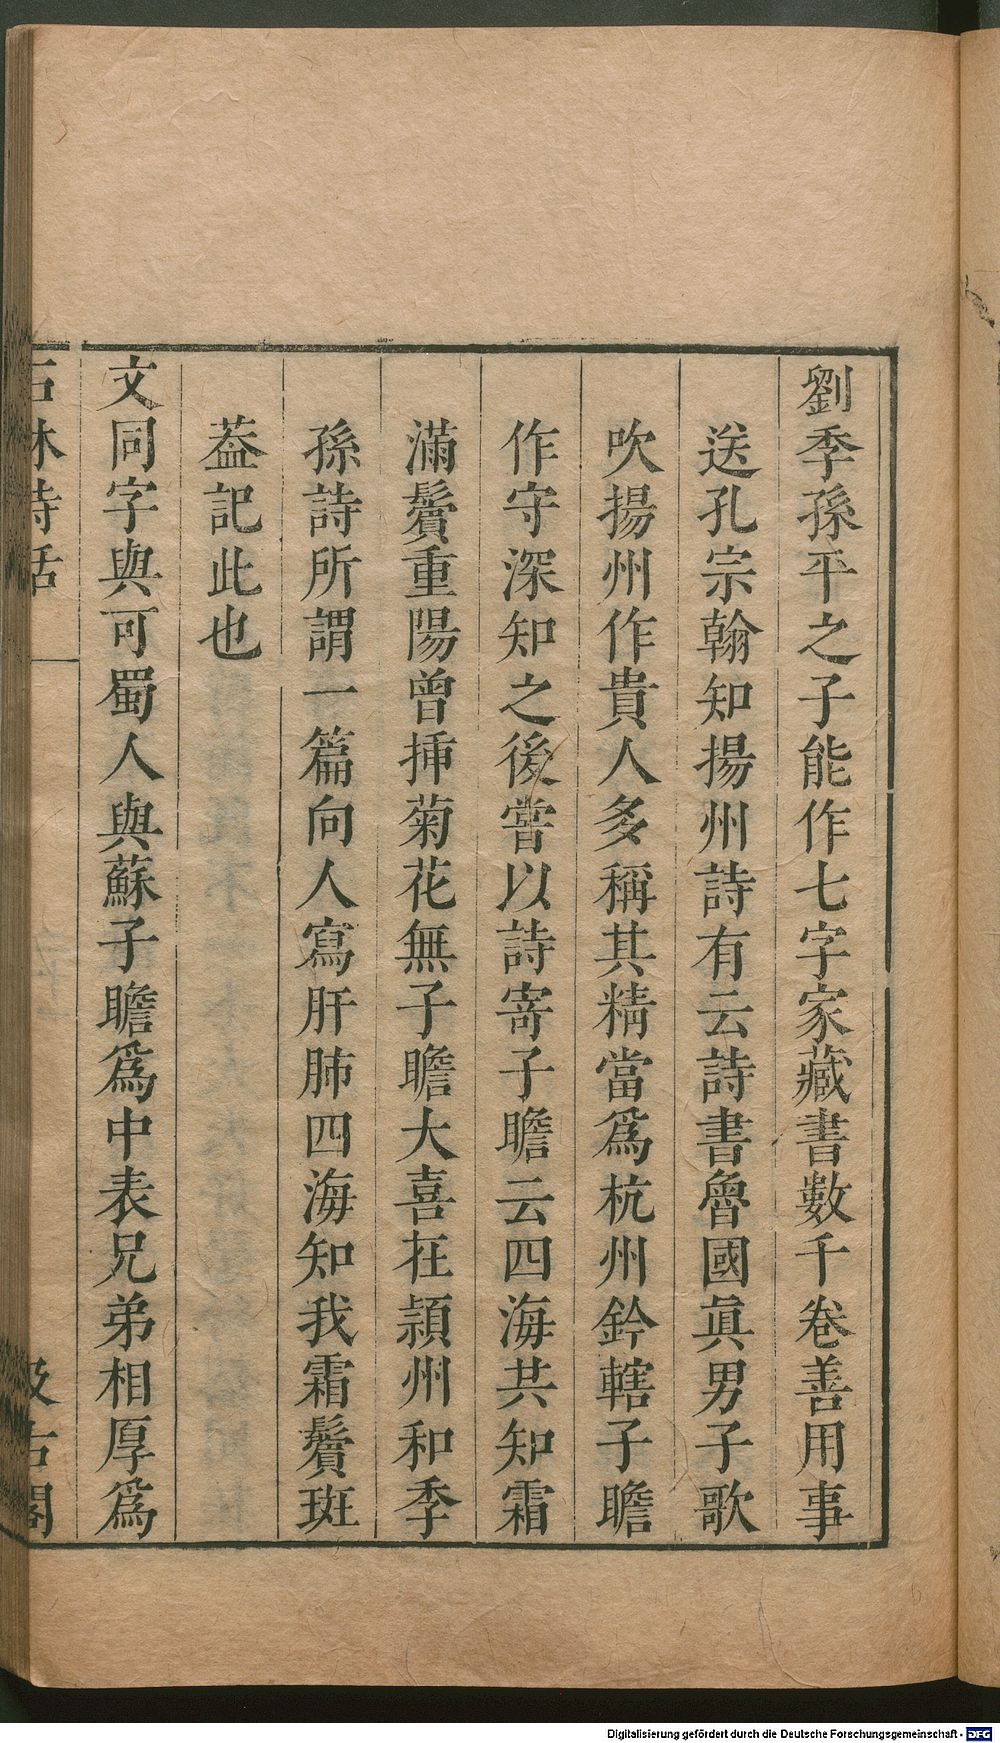 劉季孫平之子能作七字家藏書數千卷善用事
送孔宗翰知揚州詩有云詩書魯國眞男子歌
吹揚州作貴人多稱其精當爲杭州鈐轄子瞻
作守深知之後嘗以詩寄子瞻云四海共知霜
滿鬢重陽曾揷菊花無子瞻大喜在潁州和季
孫詩所謂一篇向人寫肝肺四海知我霜鬢斑
葢記此也
文同字與可蜀人與蘇子瞻爲中表兄弟相厚爲
石林詩話
汲古閣
Digitalisierung gefördert durch die Deutsche Forschungsgemeinschaft - DFG